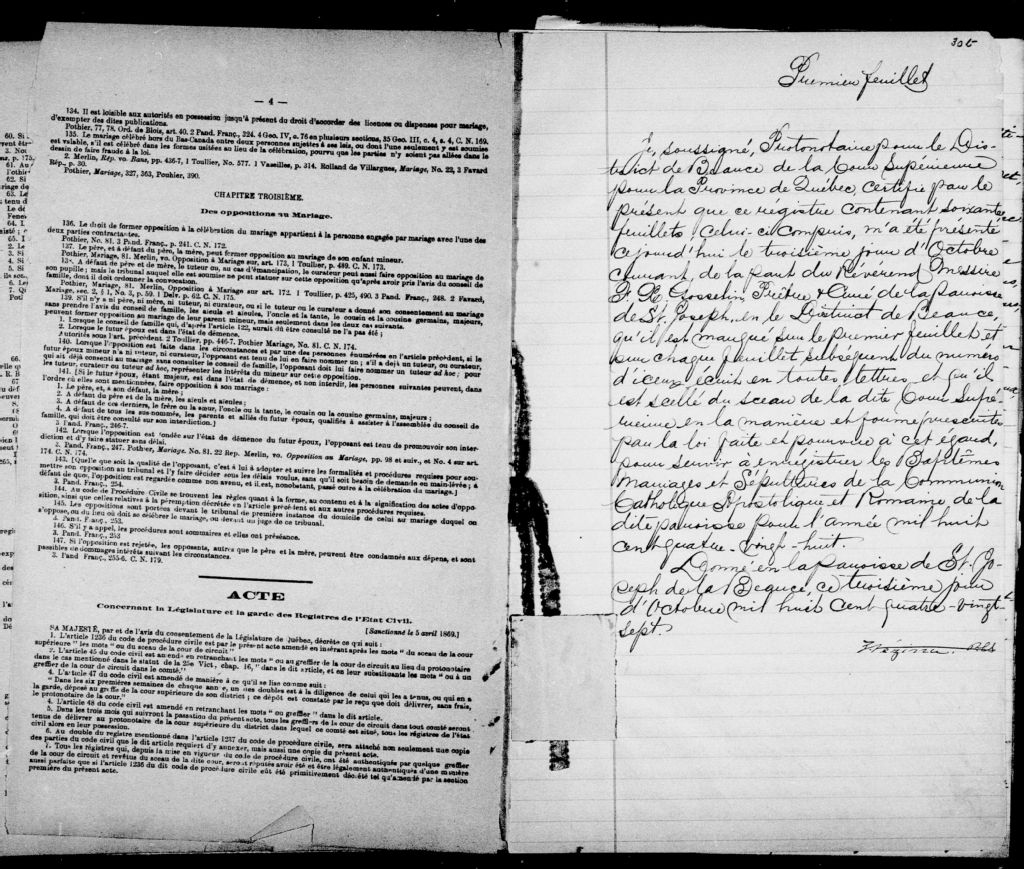 — 4 —
134. Il est loisible aux autorités en possession jusqu'à présent du droit d'accorder des licences ou dispenses pour mariage,
d'exempter des dites publications.
Pothier, 77, 78. Ord. de Blois, art. 40. 2 Pand. Franç., 224. 4 Geo. IV, c. 76 en plusieurs sections, 35 Geo. III, c. 4, s. 4, C. N. 169.
135. Le mariage célébré hors du Bas-Canada entre deux personnes sujettes à ses lois, ou dont l'une seulement y est soumise
est valable, s'il est célébré dans les formes usitées au lieu de la célébration, pourvu que les parties n'y soient pas allées dans le
dessein de faire fraude à la loi.
2. Merlin, Rép. vo. Bans, pp. 436-7, 1 Toullier, No. 577. 1 Vaseilles, p. 314. Rolland de Villargues, Mariage, No. 22, 3 Favard
Rép., p. 30.
Pothier, Mariage, 327, 363, Pouhier, 390.
CHAPITRE TROISIÈME.
Des oppositions au Mariage.
136. Le droit de former opposition à la célébration du mariage appartient à la personne engagée par mariage avec l'une des
deux parties contractantes.
Pothier, No. 81. 3 Pand. Franç., p. 241. C. N. 172.
137. Le père, et à défaut du père, la mère, peut former opposition au mariage de son enfant mineur.
Pothier, Mariage, 81. Merlin, vo. Opposition à Mariage sur art. 173, 1 Toullier, p. 489. C. N. 173.
138. A défaut de père et de mère, le tuteur ou, au cas d'émancipation, le curateur peut aussi faire opposition au mariage de
son pupille; mais le tribunal auquel elle est soumise ne peut statuer sur cette opposition qu'après avoir pris l'avis du conseil de
famille, dont il doit ordonner la convocation.
Pothier, Mariage, 81. Merlin, Opposition à Mariage sur art. 172. 1 Toullier, p. 425, 490. 3 Pand. Franç., 248. 2 Favard,
Mariage, sec. 2, § 1, No. 3, p. 59. 1 Delv. p. 62. C. N. 175.
139. S'il n'y a ni père, ni mère, ni tuteur, ni curateur, ou si le tuteur ou le curateur a donné son consentement au mariage
sans prendre l'avis du conseil de famille, les aïeuls et aïeules, l'oncle et la tante, le cousin et la cousine germains, majeurs,
peuvent former opposition au mariage de leur parent mineur, mais seulement dans les deux cas suivants.
1. Lorsque le conseil de famille qui, d'après l'article 122, aurait dû être consulté ne l'a pas été;
2. Lorsque le futur époux est dans l'état de démence.
Autorités sous l'art. précédent. 2 Toullier, pp. 446-7. Pothier Mariage, No. 81. C. N. 174.
140. Lorsque l'opposition est faite dans les circonstances et par une des personnes énumérées en l'article précédent, si le
futur époux mineur n'a ni tuteur, ni curateur, l'opposant est tenu de lui en faire nommer un; s'il a déjà un tuteur, ou curateur,
qui ait déjà consenti au mariage sans consulter le conseil de famille, l'opposant doit lui faire nommer un tuteur ad hoc; pour
les tuteur, curateur ou tuteur ad hoc, représenter les intérêts du mineur sur cette opposition.
141. [Si le futur époux, étant majeur, est dans l'état de démence, et non interdit, les personnes suivantes peuvent, dans
l'ordre où elles sont mentionnées, faire opposition à son mariage:
1. Le père, et, à son défaut, la mère;
2. A défaut du père et de la mère, les aïeuls et aïeules;
3. A défaut de ces derniers, le frère ou la sœur, l'oncle ou la tante, le cousin ou la cousine germains, majeurs;
4. A défaut de tous les sus-nommés, les parents et alliés du futur époux, qualifiés à assister à l'assemblée du conseil de
famille, qui doit être consulté sur son interdiction.]
3 Pand. Franç., 246-7.
142. Lorsque l'opposition est fondée sur l'état de démence du futur époux, l'opposant est tenu de promouvoir son inter-
diction et d'y faire statuer sans délai.
2. Pand. Franç., 247. Pothier, Mariage. No. 81. 22 Rep. Merlin, vo. Opposition au Mariage, pp. 98 et suiv., et No. 4 sur art.
174. C. N. 174.
143. [Quelle que soit la qualité de l'opposant, c'est à lui à adopter et suivre les formalités et procédures requises pour sou-
mettre son opposition au tribunal et l'y faire décider sous les délais voulus, sans qu'il soit besoin de demande en main-levée; à
défaut de quoi, l'opposition est regardée comme non avenu, et il est, nonobstant, passé outre à la célébration du mariage.]
3. Pand. Franç., 254.
144. Au code de Procédure Civile se trouvent les règles quant à la forme, au contenu et à la signification des actes d'oppo-
sition, ainsi que celles relatives à la péremption décrétée en l'article précédent et aux autres procédures requises.
145. Les oppositions sont portées devant le tribunal de première instance du domicile de celui au mariage duquel on
s'oppose, ou du lieu où doit se célébrer le mariage, ou devant un juge de ce tribunal.
3. Pand. Franç., 253.
146. S'il y a appel, les procédures sont sommaires et elles ont préséance.
3. Pand. Franç., 253
147. Si l'opposition est rejetée, les opposants, autres que le père et la mère, peuvent être condamnés aux dépens, et sont
passibles de dommages intérêts suivant les circonstances.
3. Pand Franç., 255-6. C. N. 179.
ACTE
Concernant la Législature et la garde des Registres de l'Etat Civil.
[Sanctionné le 5 avril 1869.]
SA MAJESTÉ, par et de l'avis du consentement de la Législature de Québec, décrète ce qui suit:
1. L'article 1236 du code de procédure civile est par le présent acte amendé en insérant après les mots "du sceau de la cour
supérieure" les mots "ou du sceau de la cour de circuit."
2. L'article 45 du code civil est amendé en retranchant les mots "ou au greffier de la cour de circuit au lieu du protonotaire
dans le cas mentionné dans le statut de la 25e Vict., chap. 16," dans le dit article, et en leur substituant les mots "ou à un
greffier de la cour de circuit dans le comté."
4. L'article 47 du code civil est amendé de manière à ce qu'il se lise comme suit:
"Dans les six premières semaines de chaque année, un des doubles est à la diligence de celui qui les a tenus, ou qui en a
la garde, déposé au greffe de la cour supérieure de son district; ce dépôt est constaté par le reçu que doit délivrer, sans frais,
le protonotaire de la cour."
4. L'article 48 du code civil est amendé en retranchant les mots "ou greffier" dans le dit article.
5. Dans les trois mois qui suivront la passation du présent acte, tous les greffiers de la cour de circuit dans tout comté seront
tenus de délivrer au protonotaire de la cour supérieure du district dans lequel ce comté est situé, tous les registres de l'état
civil alors en leur possession.
6. Au double du registre mentionné dans l'article 1237 du code de procédure civile, sera attaché non seulement une copie
des parties du code civil que le dit article requiert d'y annexer, mais aussi une copie du présent acte.
7. Tous les régistres qui, depuis la mise en vigueur du code de procédure civile, ont été authentiqués par quelque greffier
de la cour de circuit et revêtus du sceau de la dite cour, seront réputés avoir été et être légalement authentiqués d'une manière
aussi parfaite que si l'article 1236 du dit code de procédure civile eût été primitivement décrété tel qu'amendé par la section
première du présent acte.
305
Premier feuillet
Je, soussigné, Protonotaire pour le Dis-
trict de Beauce de la Cour Supérieure
pour la Province de Québec, certifie par le
présent que ce régistre contenant soixante
feuillets, Celui-ci Compris, m'a été présenté
cejourd'hui le troisième jour d'Octobre
Courant, de la part du Révérend Messire
Gosselin Prêtre & Curé de la paroisse
de St. Joseph, en le District de Beauce,
qu'il est marqué sur le premier feuillet et
sur chaque feuillet subséquent du numéro
d'iceux écrit en toutes lettres, et qu'il
est scellé du sceau de la dite Cour Supé-
rieure en la manière et forme prescrites
par la loi faite et pourvue à cet égard,
pour servir à enrégistrer les Baptêmes
Mariages et Sépultures de la Communion
Catholique Apostolique et Romaine de la
dite paroisse pour l'année mil huit
cent quatre-vingt-huit.
Donné en la paroisse de St. Jo-
seph de la Beauce, ce troisième jour
d'Octobre mil huit Cent quatre-vingt
Sept.